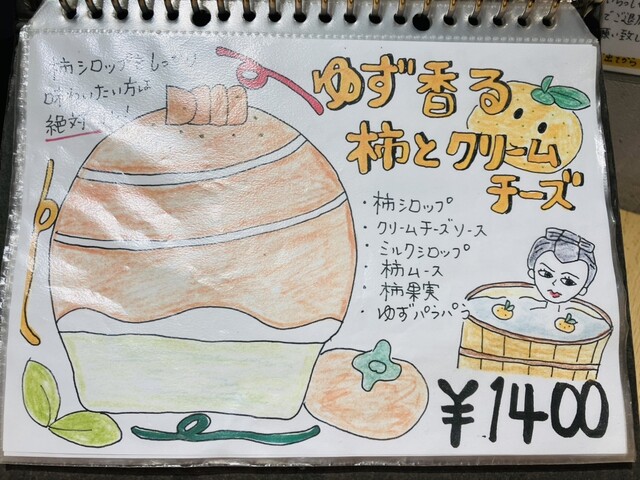 柿シロップをしっかり
味わいたい方は
絶対
ゆず香る
柿とクリーム
チーズ
・柿シロップ
・クリームチーズソース
・ミルクシロップ
・柿ムース
・柿果実
・ゆずパラパラ
¥1400